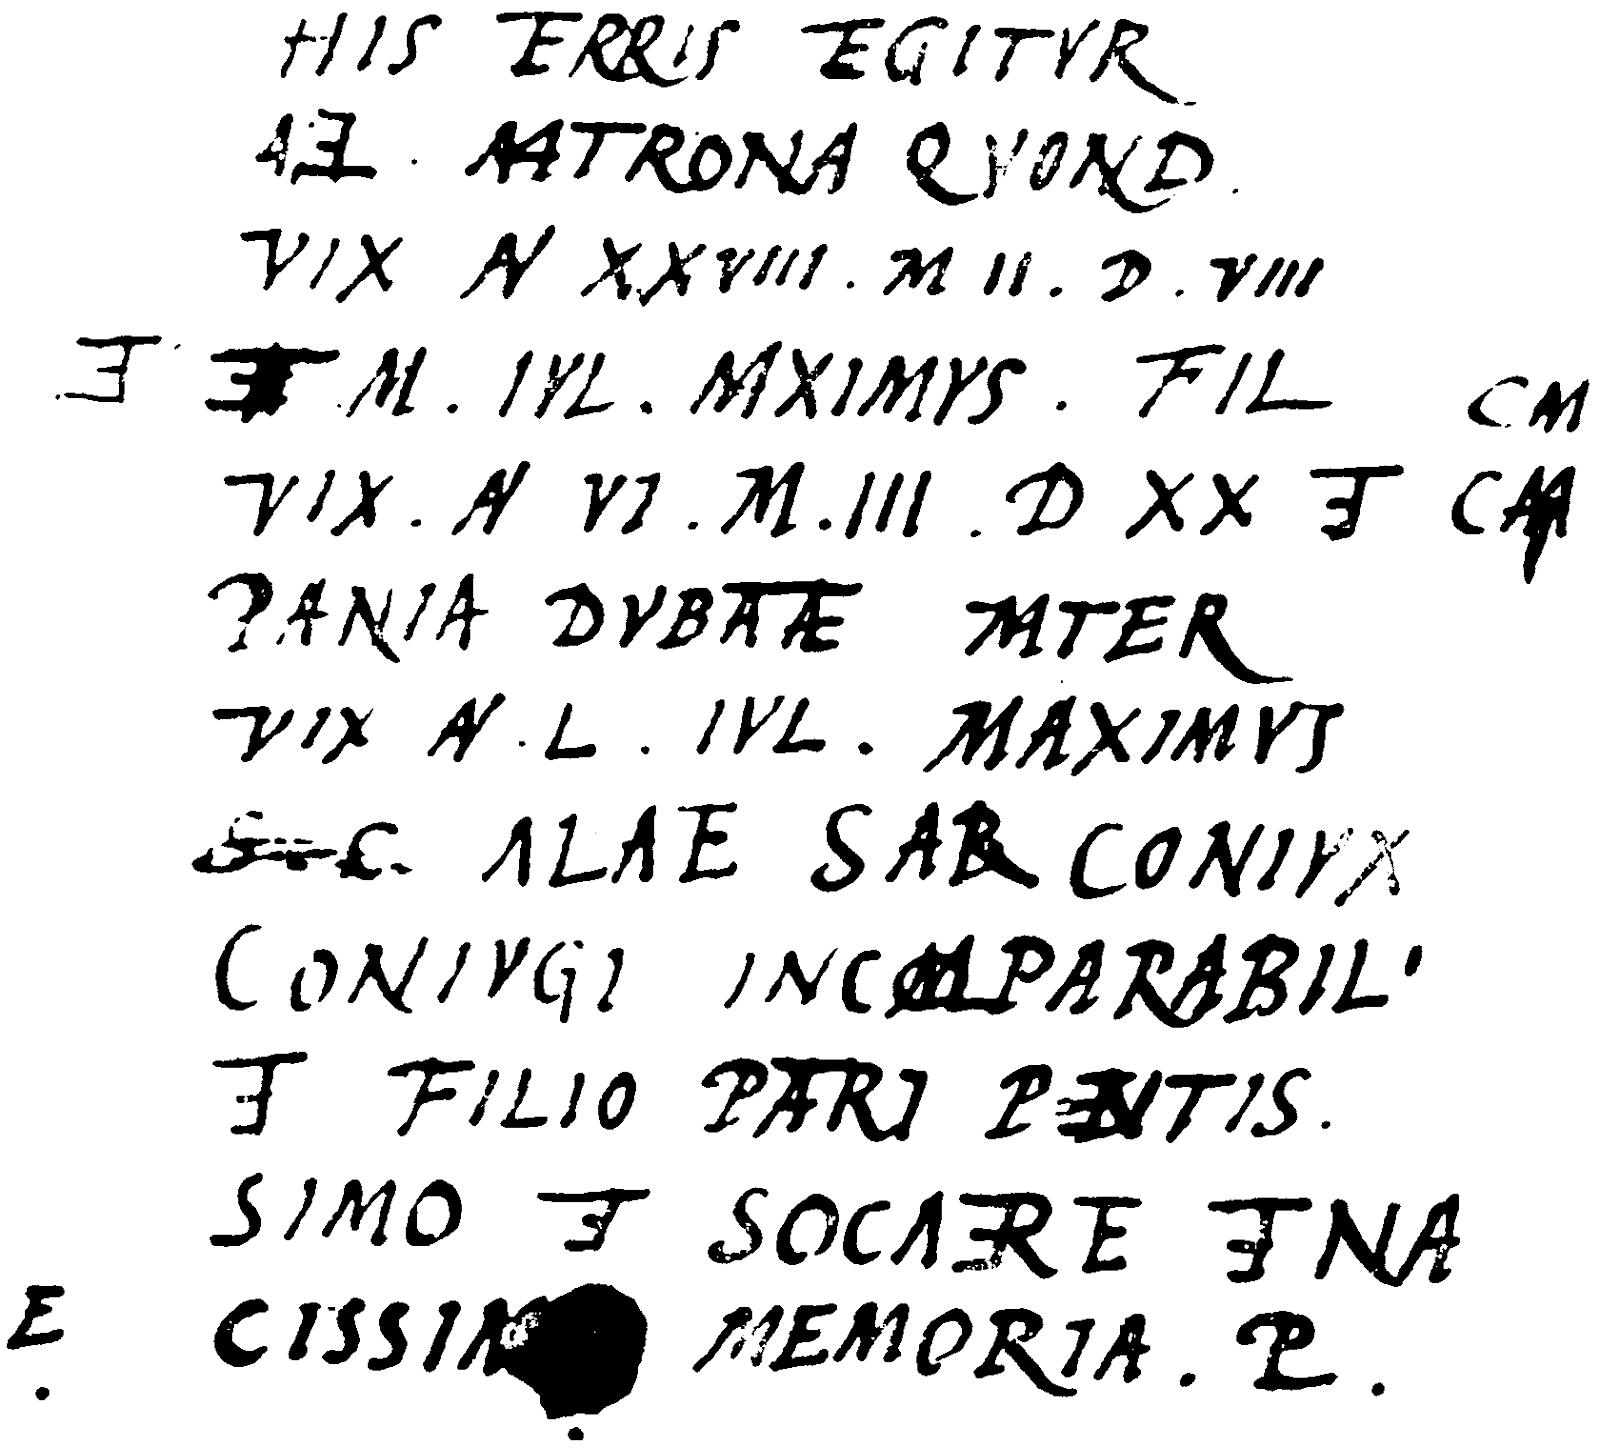 HIS TERRIS TEGITVR
AEL . MATRONA QVOND .
VIX AN XXVIII . M II . D . VIII
ET ET M . IVL . MAXIMVS . FIL CM
VIX . AN VI . M . III . D XX ET CAM
PANIA DVBATAE MATER
VIX AN . L . IVL . MAXIMVS
S C . ALAE SAR CONIVX
CONIVGI INCOMPARABILI
ET FILIO PATRI PIENTIS .
SIMO ET SOCAERE TENA
E . CISSIM MEMORIA . P .